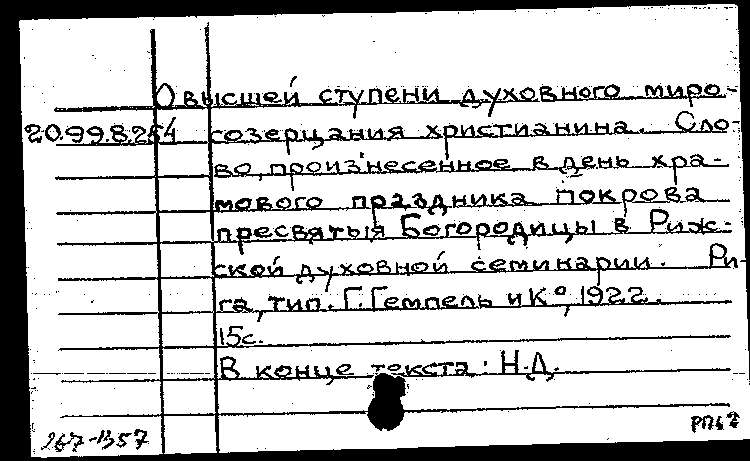 О высшей ступени духовного миро-
20.99.8.254 созерцания христианина. Сло-
во, произнесенное в день хра-
мового праздника покрова
пресвятыя Богородицы в Риж-
ской духовной семинарии. Ри-
га, тип. Г. Гемпель и К°, 1922.
15с.
В конце текста: Н.Д.
267-1357